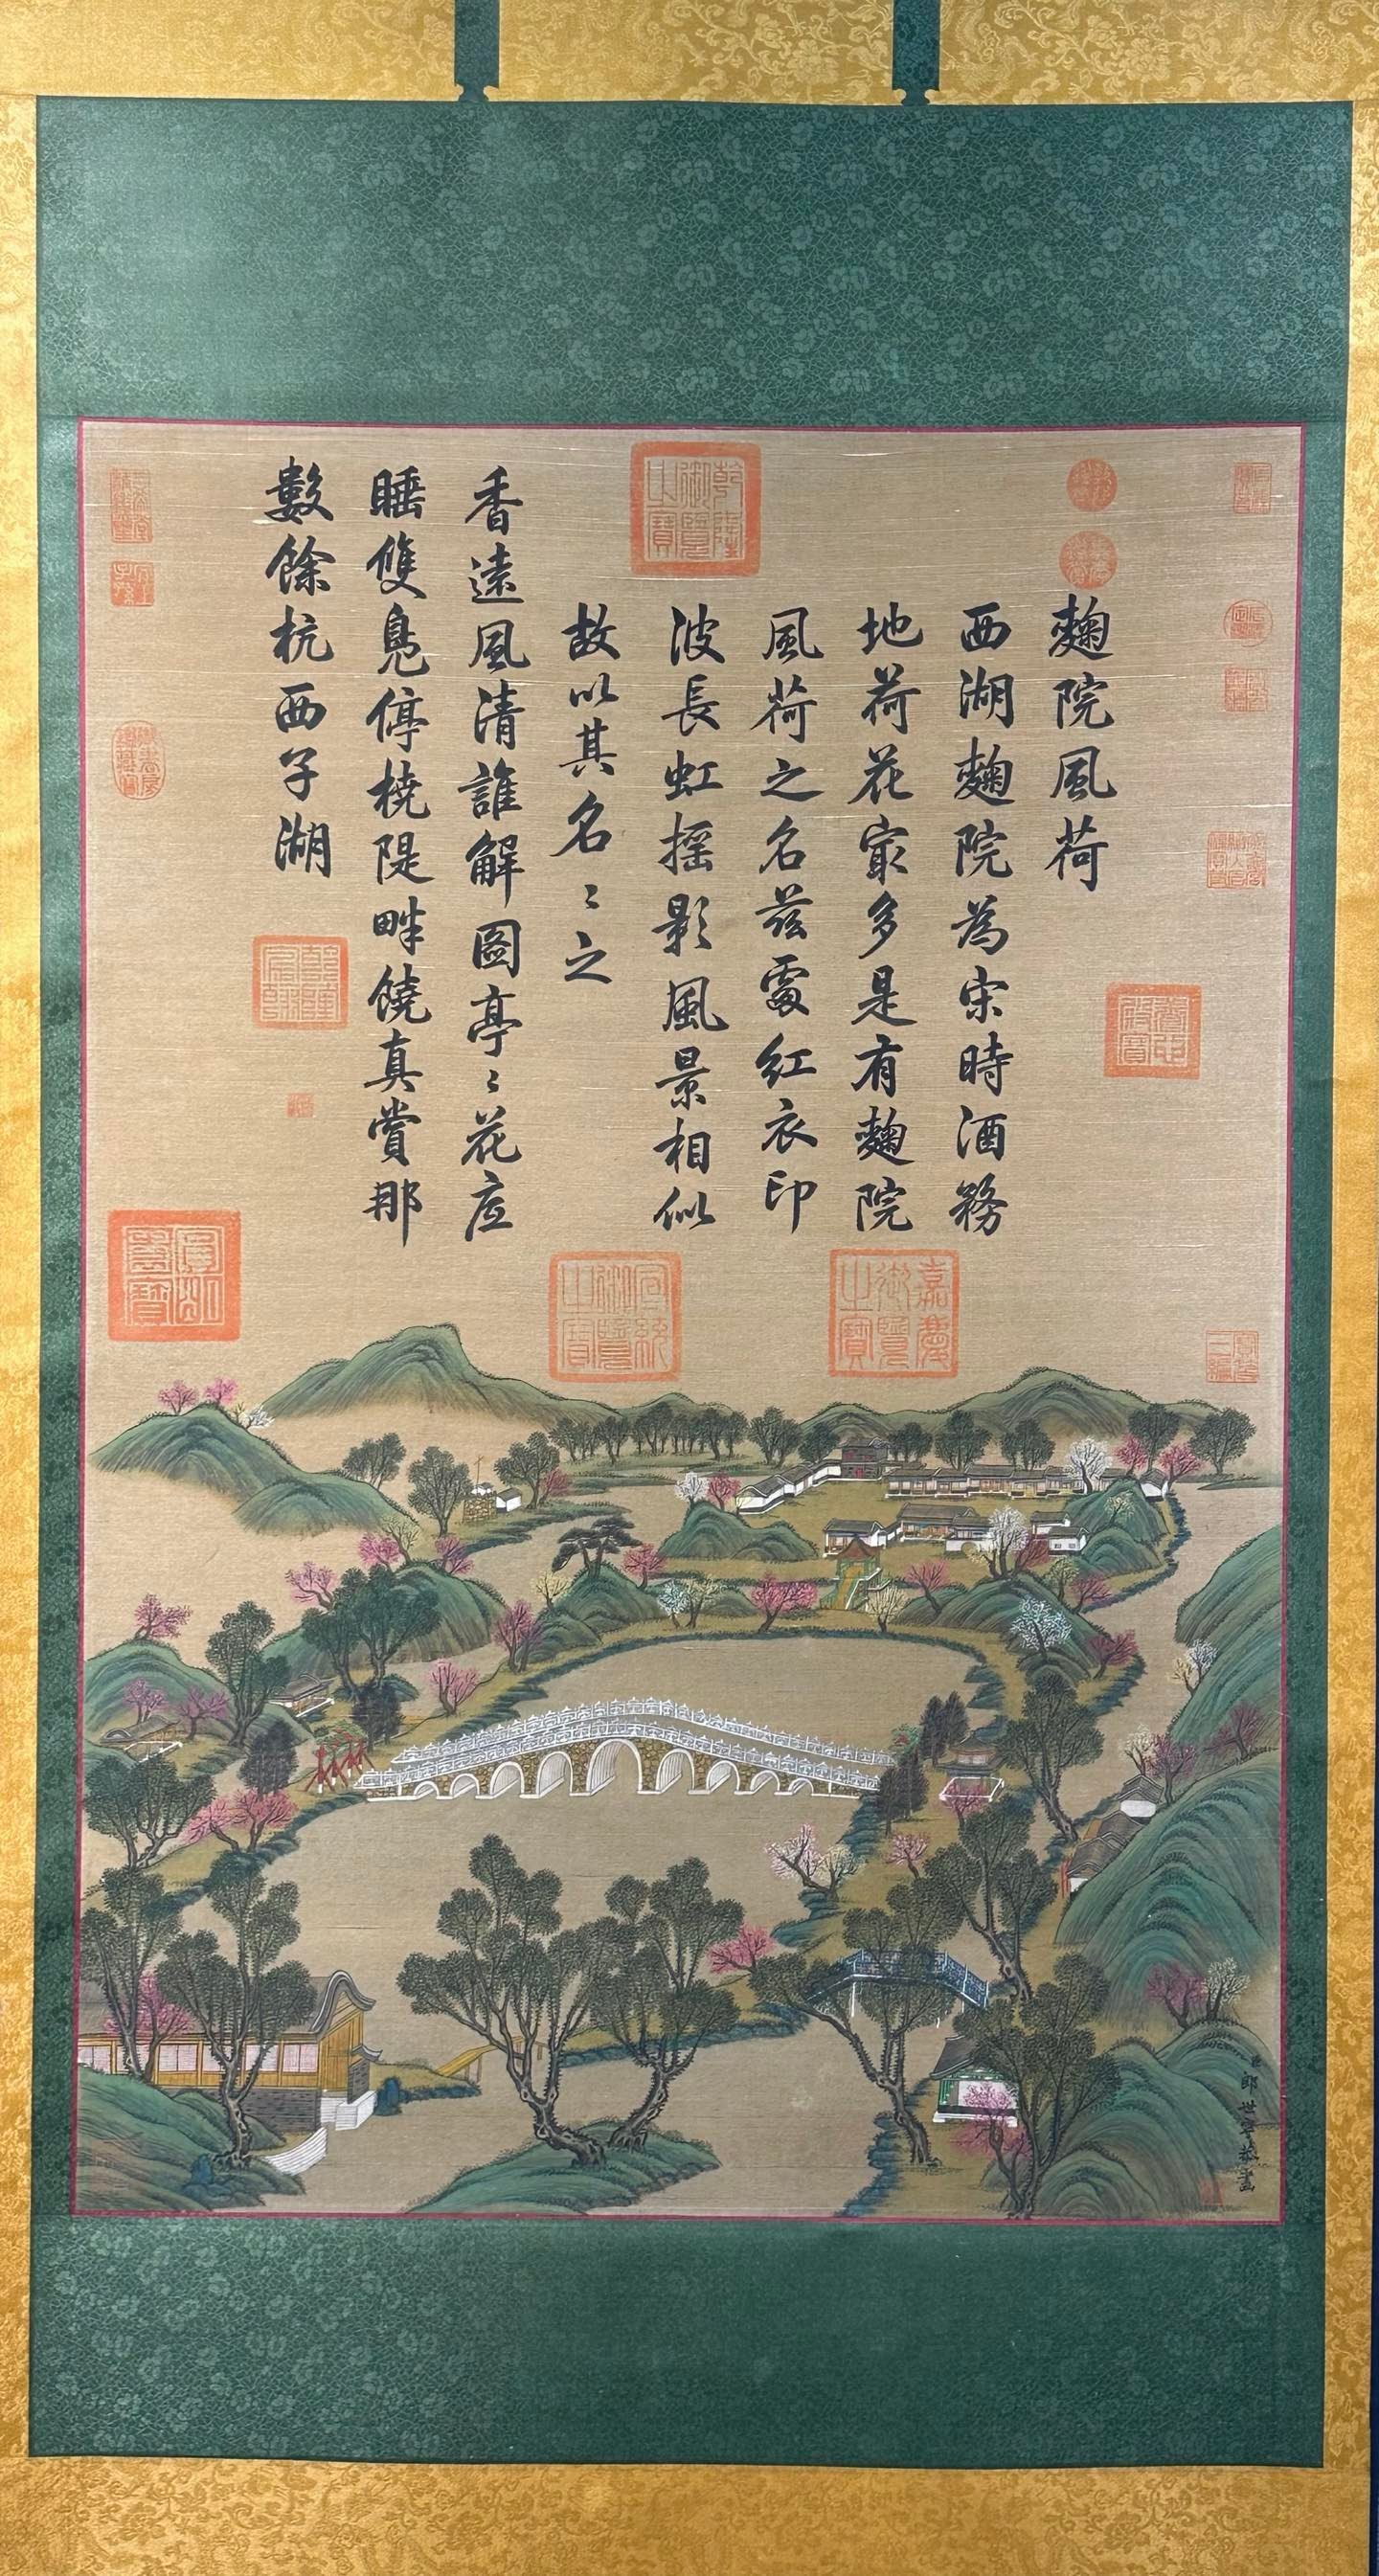 麴院風荷
西湖麴院為宋時酒務
地荷花㝡多是有麴院
風荷之名茲處紅衣印
波長虹摇影風景相似
故以其名〻之
香遠風清誰解圖亭〻花底
睡雙鳧停橈隄畔饒真賞那
數餘杭西子湖
乾隆御覽之寶
嘉慶御覽之寶
宣統御覽之寶
郎世寧恭畫